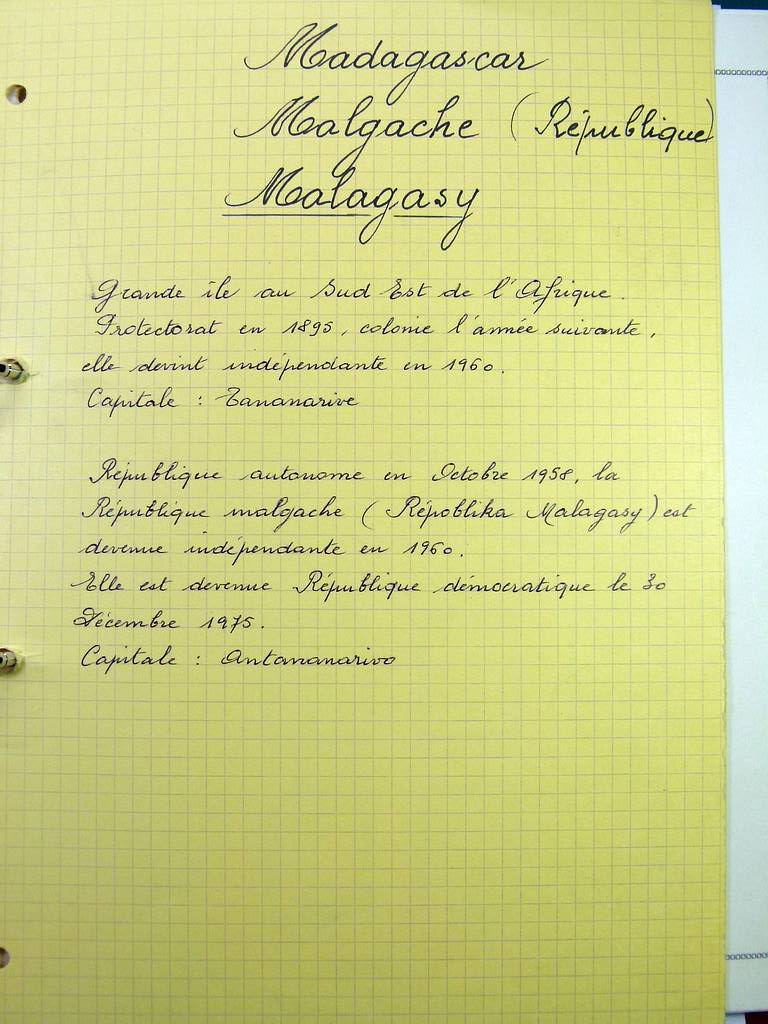 Madagascar
Malgache (République)
Malagasy
Grande île au Sud Est de l'Afrique.
Protectorat en 1895, colonie l'année suivante,
elle devint indépendante en 1960.
Capitale : Tananarive
République autonome en Octobre 1958, la
République malgache (Répoblika Malagasy) est
devenue indépendante en 1960.
Elle est devenue République démocratique le 30
Décembre 1975.
Capitale : Antananarivo